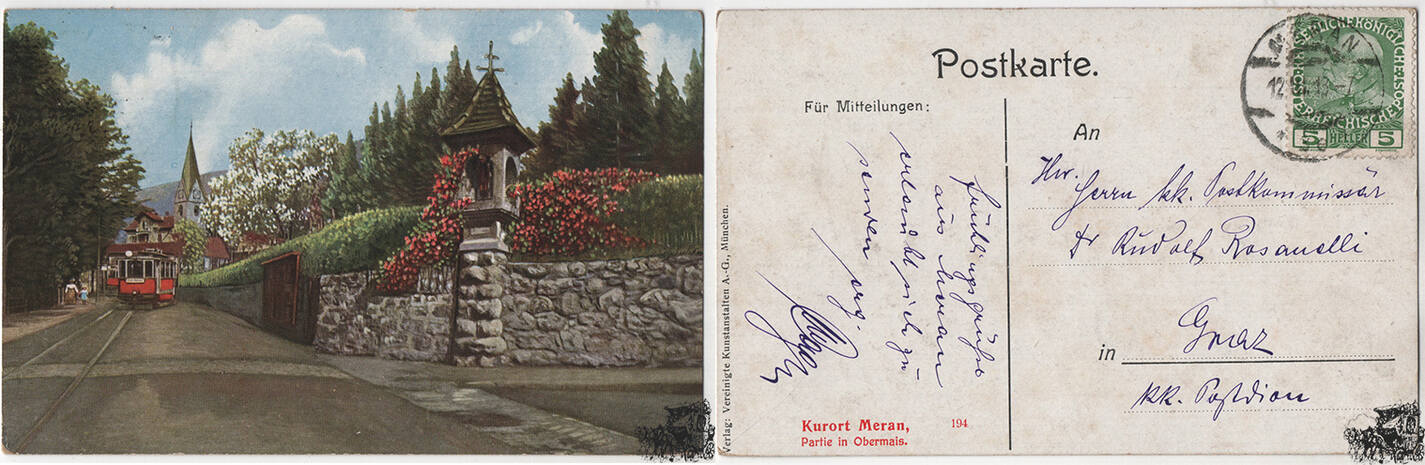 Postkarte.
Für Mitteilungen:
Frühlingsgrüße
aus Meran
erlaubt sich zu
senden erg.
KAISERLICHE KÖNIGLICHE
ÖSTERREICHISCHE
5 HELLER 5
MERAN
12
An
Hw.
Herrn kk. Postkommissär
Dr Rudolf Rosanelli
in Graz
kk. Postdion
Kurort Meran, 194
Partie in Obermais.
Verlag: Vereinigte Kunstanstalten A.-G., München.